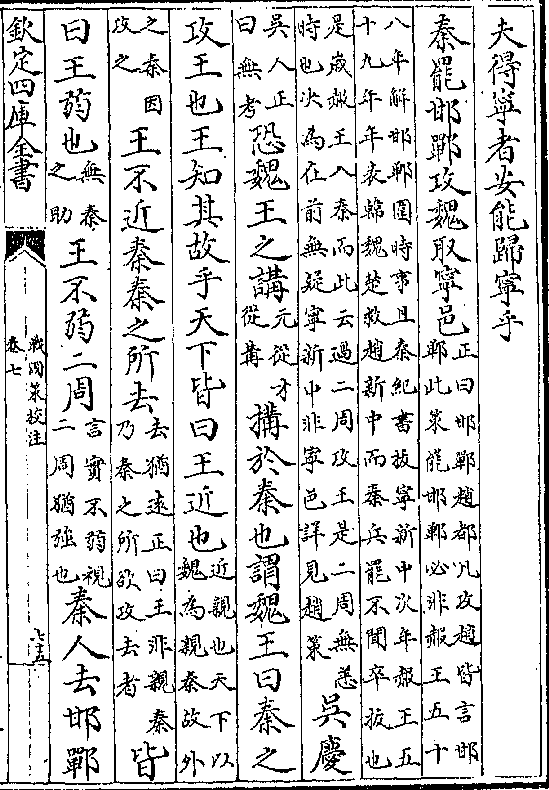 夫得寧者安能歸寧乎
秦罷邯鄲攻魏取寧邑正曰邯鄲趙都凡攻趙皆言邯鄲此策罷邯鄲必非赧王五十
八年解邯鄲圍時事且秦紀書拔寧新中次年赧王五十九年年表韓魏楚救趙新中而秦兵罷不聞卒拔也
是歲赧王入秦而此云過二周攻王是二周無恙時也決為在前無疑寧新中非寧邑詳見趙策吳慶
吳人正曰無考恐魏王之講元從才從冓搆於秦也謂魏王曰秦之
攻王也王知其故乎天下皆曰王近也近親也天下以魏為親秦故外
之秦因攻之王不近秦秦之所去去猶遠正曰王非親秦乃秦之所欲攻去者皆
曰王弱也無秦之助王不弱二周言實不弱視二周猶強也秦人去邯鄲
欽定四庫全書
戰國策校注
卷七
七十五